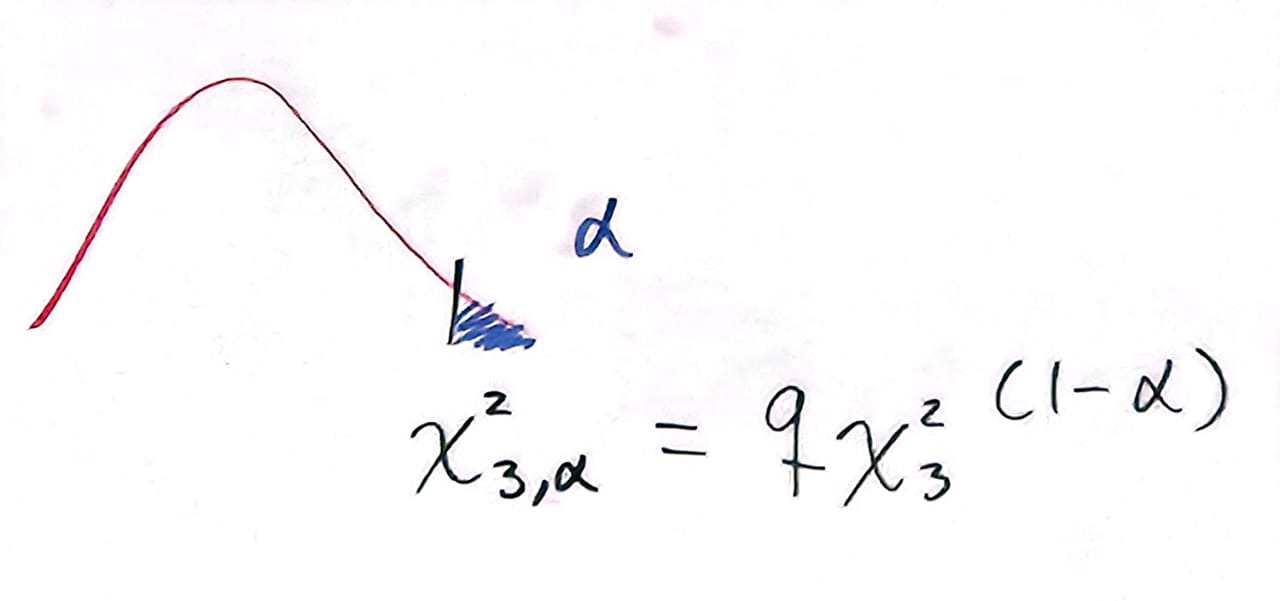 α
χ²₃,α = qχ²₃ (1-α)